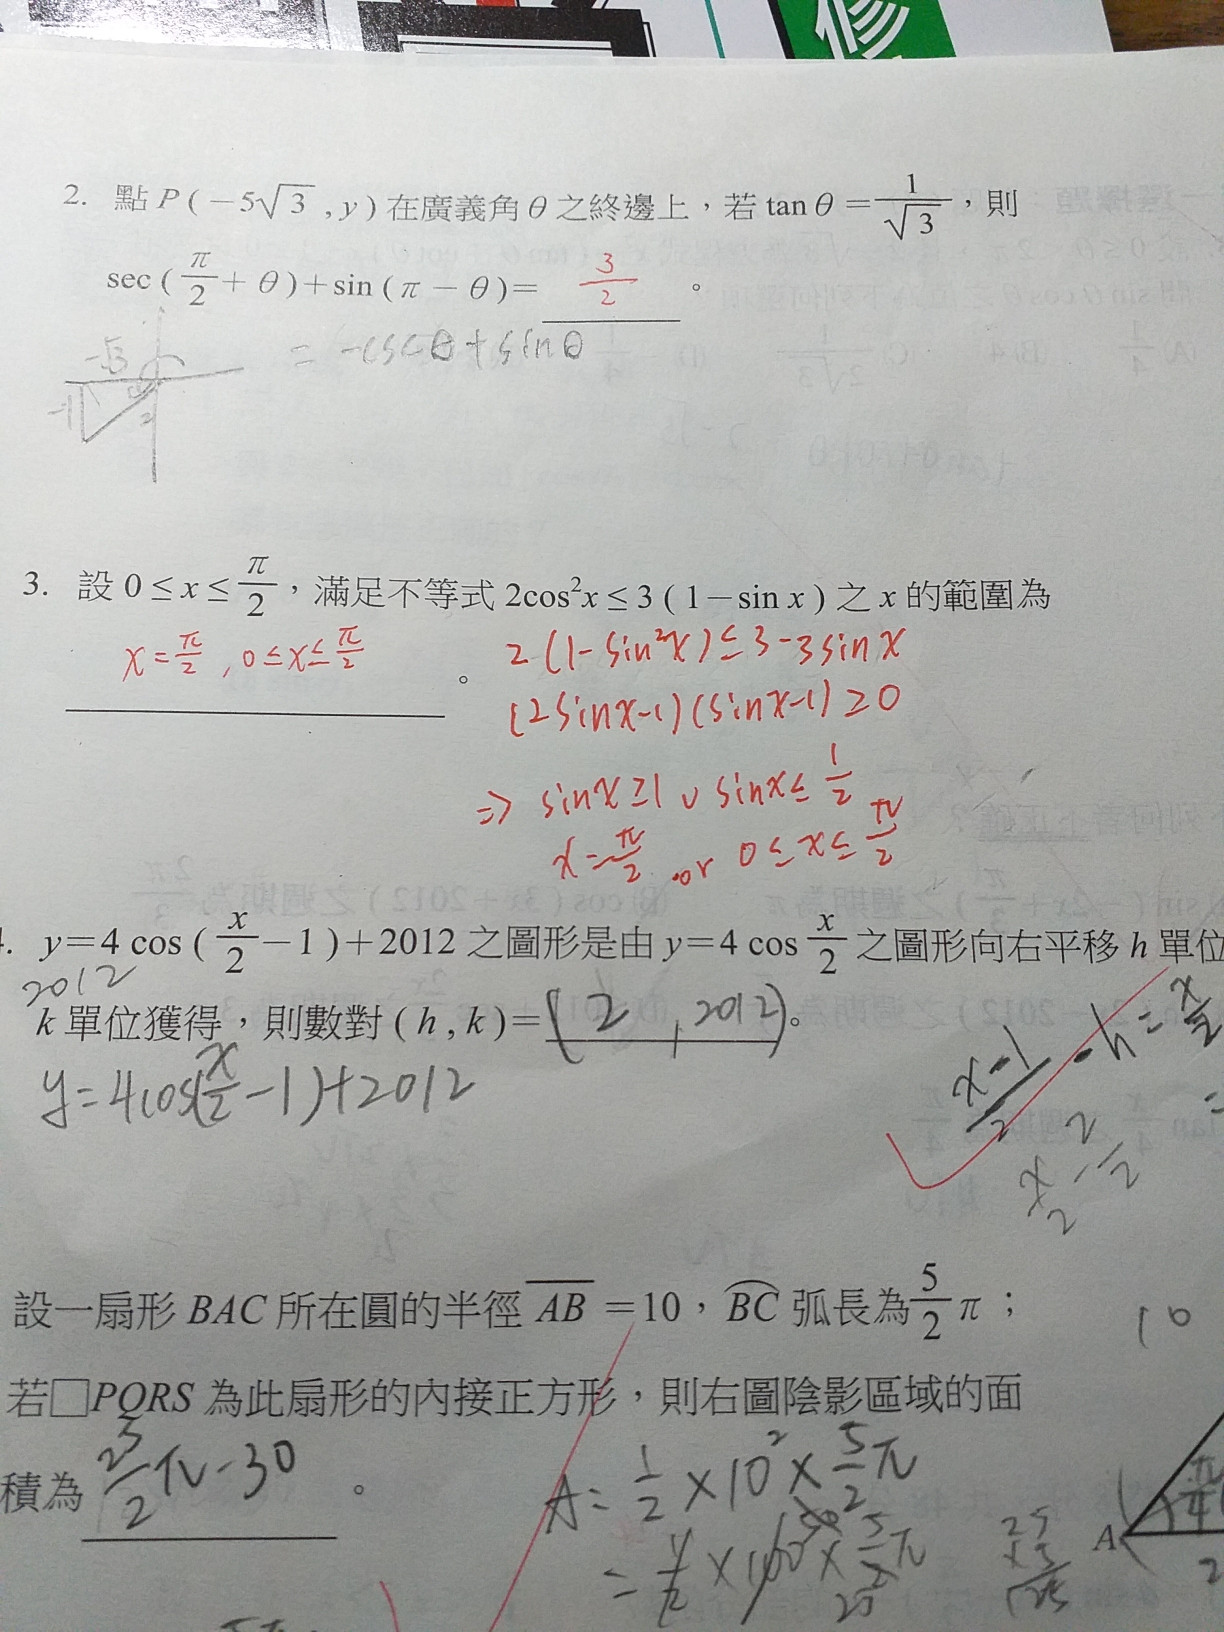 修
2. 點 P ( −5√3 , y ) 在廣義角 θ 之終邊上，若 tan θ = 1/√3，則
sec ( π/2 + θ ) + sin ( π − θ ) = 3/2 。
= −cscθ + sinθ
−√3
−1
2
3. 設 0 ≤ x ≤ π/2，滿足不等式 2cos²x ≤ 3 ( 1 − sin x ) 之 x 的範圍為
x = π/2 , 0 ≤ x ≤ π/2 。
2(1−sin²x) ≤ 3−3sinx
(2sinx−1)(sinx−1) ≥ 0
⇒ sinx ≥ 1 ∪ sinx ≤ 1/2
x = π/2 or 0 ≤ x ≤ π/2
. y = 4 cos ( x/2 − 1 ) + 2012 之圖形是由 y = 4 cos x/2 之圖形向右平移 h 單位
2012
k 單位獲得，則數對 ( h , k ) = ( 2 , 2012 )。
y = 4cos(x/2 − 1) + 2012
設一扇形 BAC 所在圓的半徑 AB = 10，BC 弧長為 5/2 π；
10
若□PQRS 為此扇形的內接正方形，則右圖陰影區域的面
積為 25/2 π − 30 。
A = 1/2 × 10² × 5/2 π
A
25
× 5
125